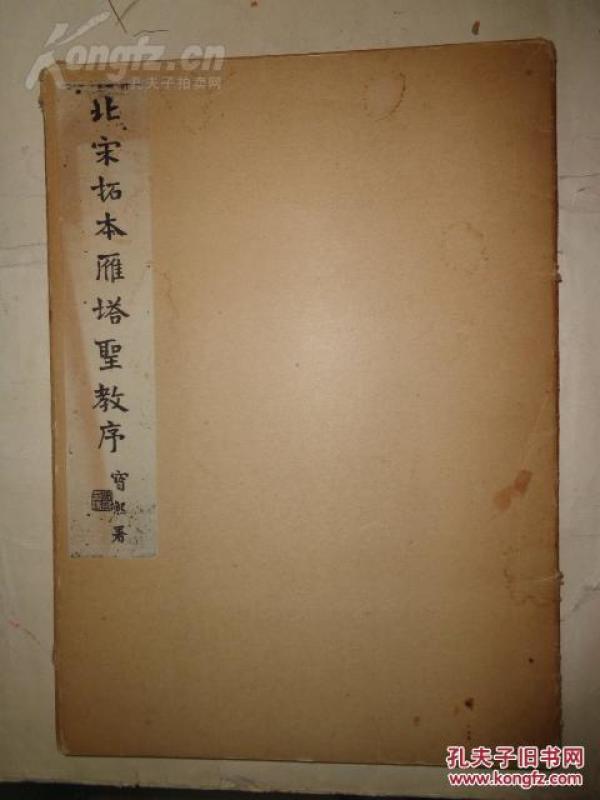 Kongfz.cn
孔夫子拍卖网
北宋拓本雁塔聖教序
署
孔夫子旧书网
www.kongfz.com